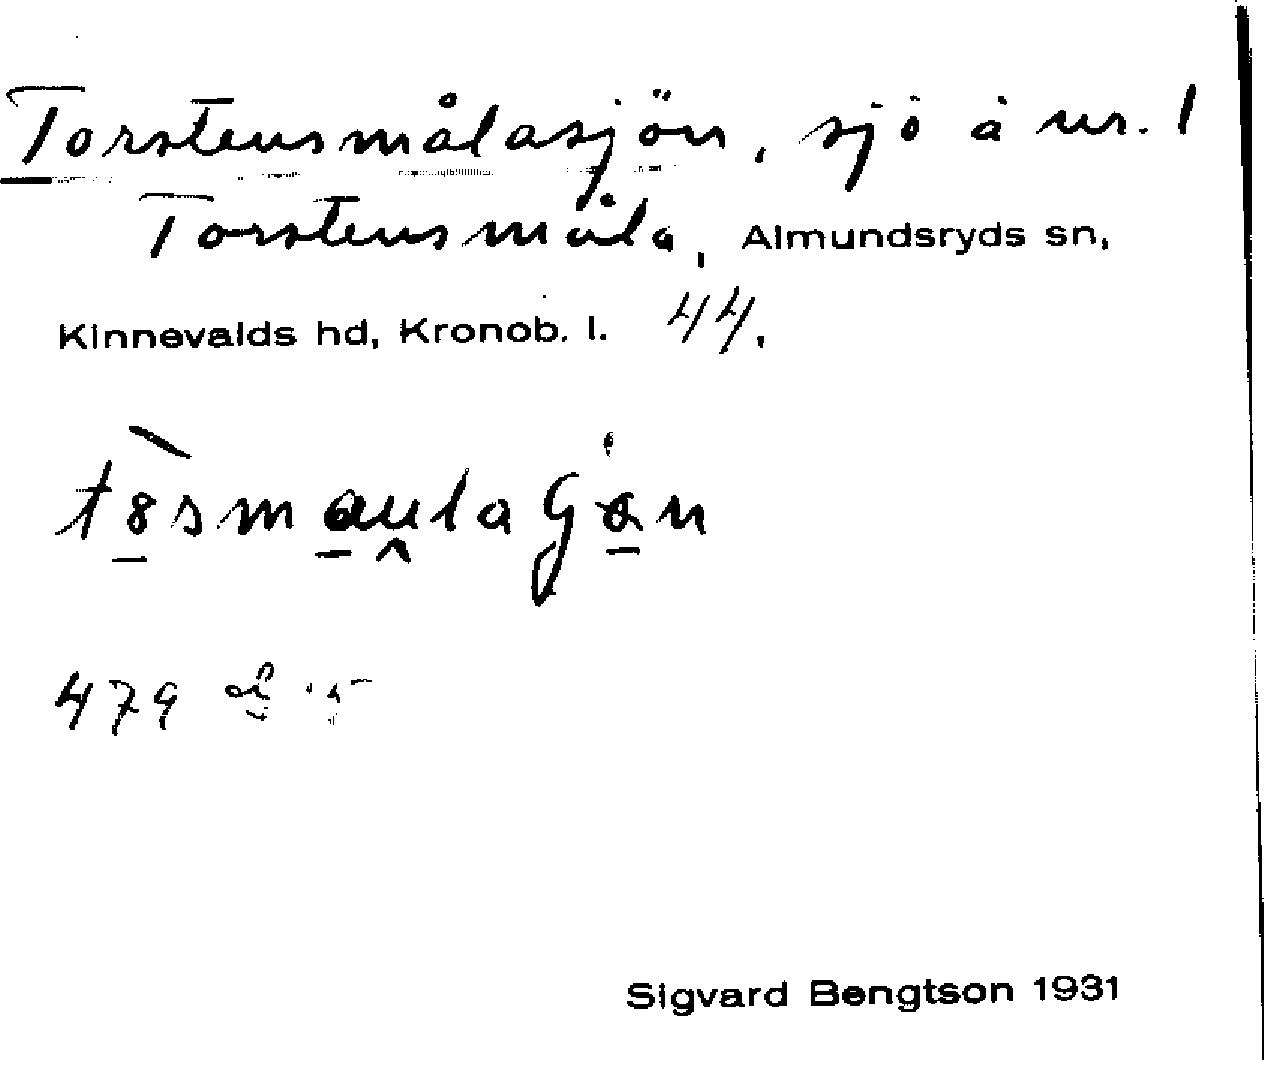 Torstensmålasjön, sjö å nr. 1
Torstensmåla, Almundsryds sn,
Kinnevalds hd, Kronob. l. 44.
479
Sigvard Bengtson 1931